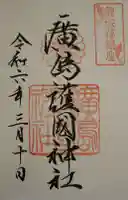 廣島護國神社
令和六年三月十日